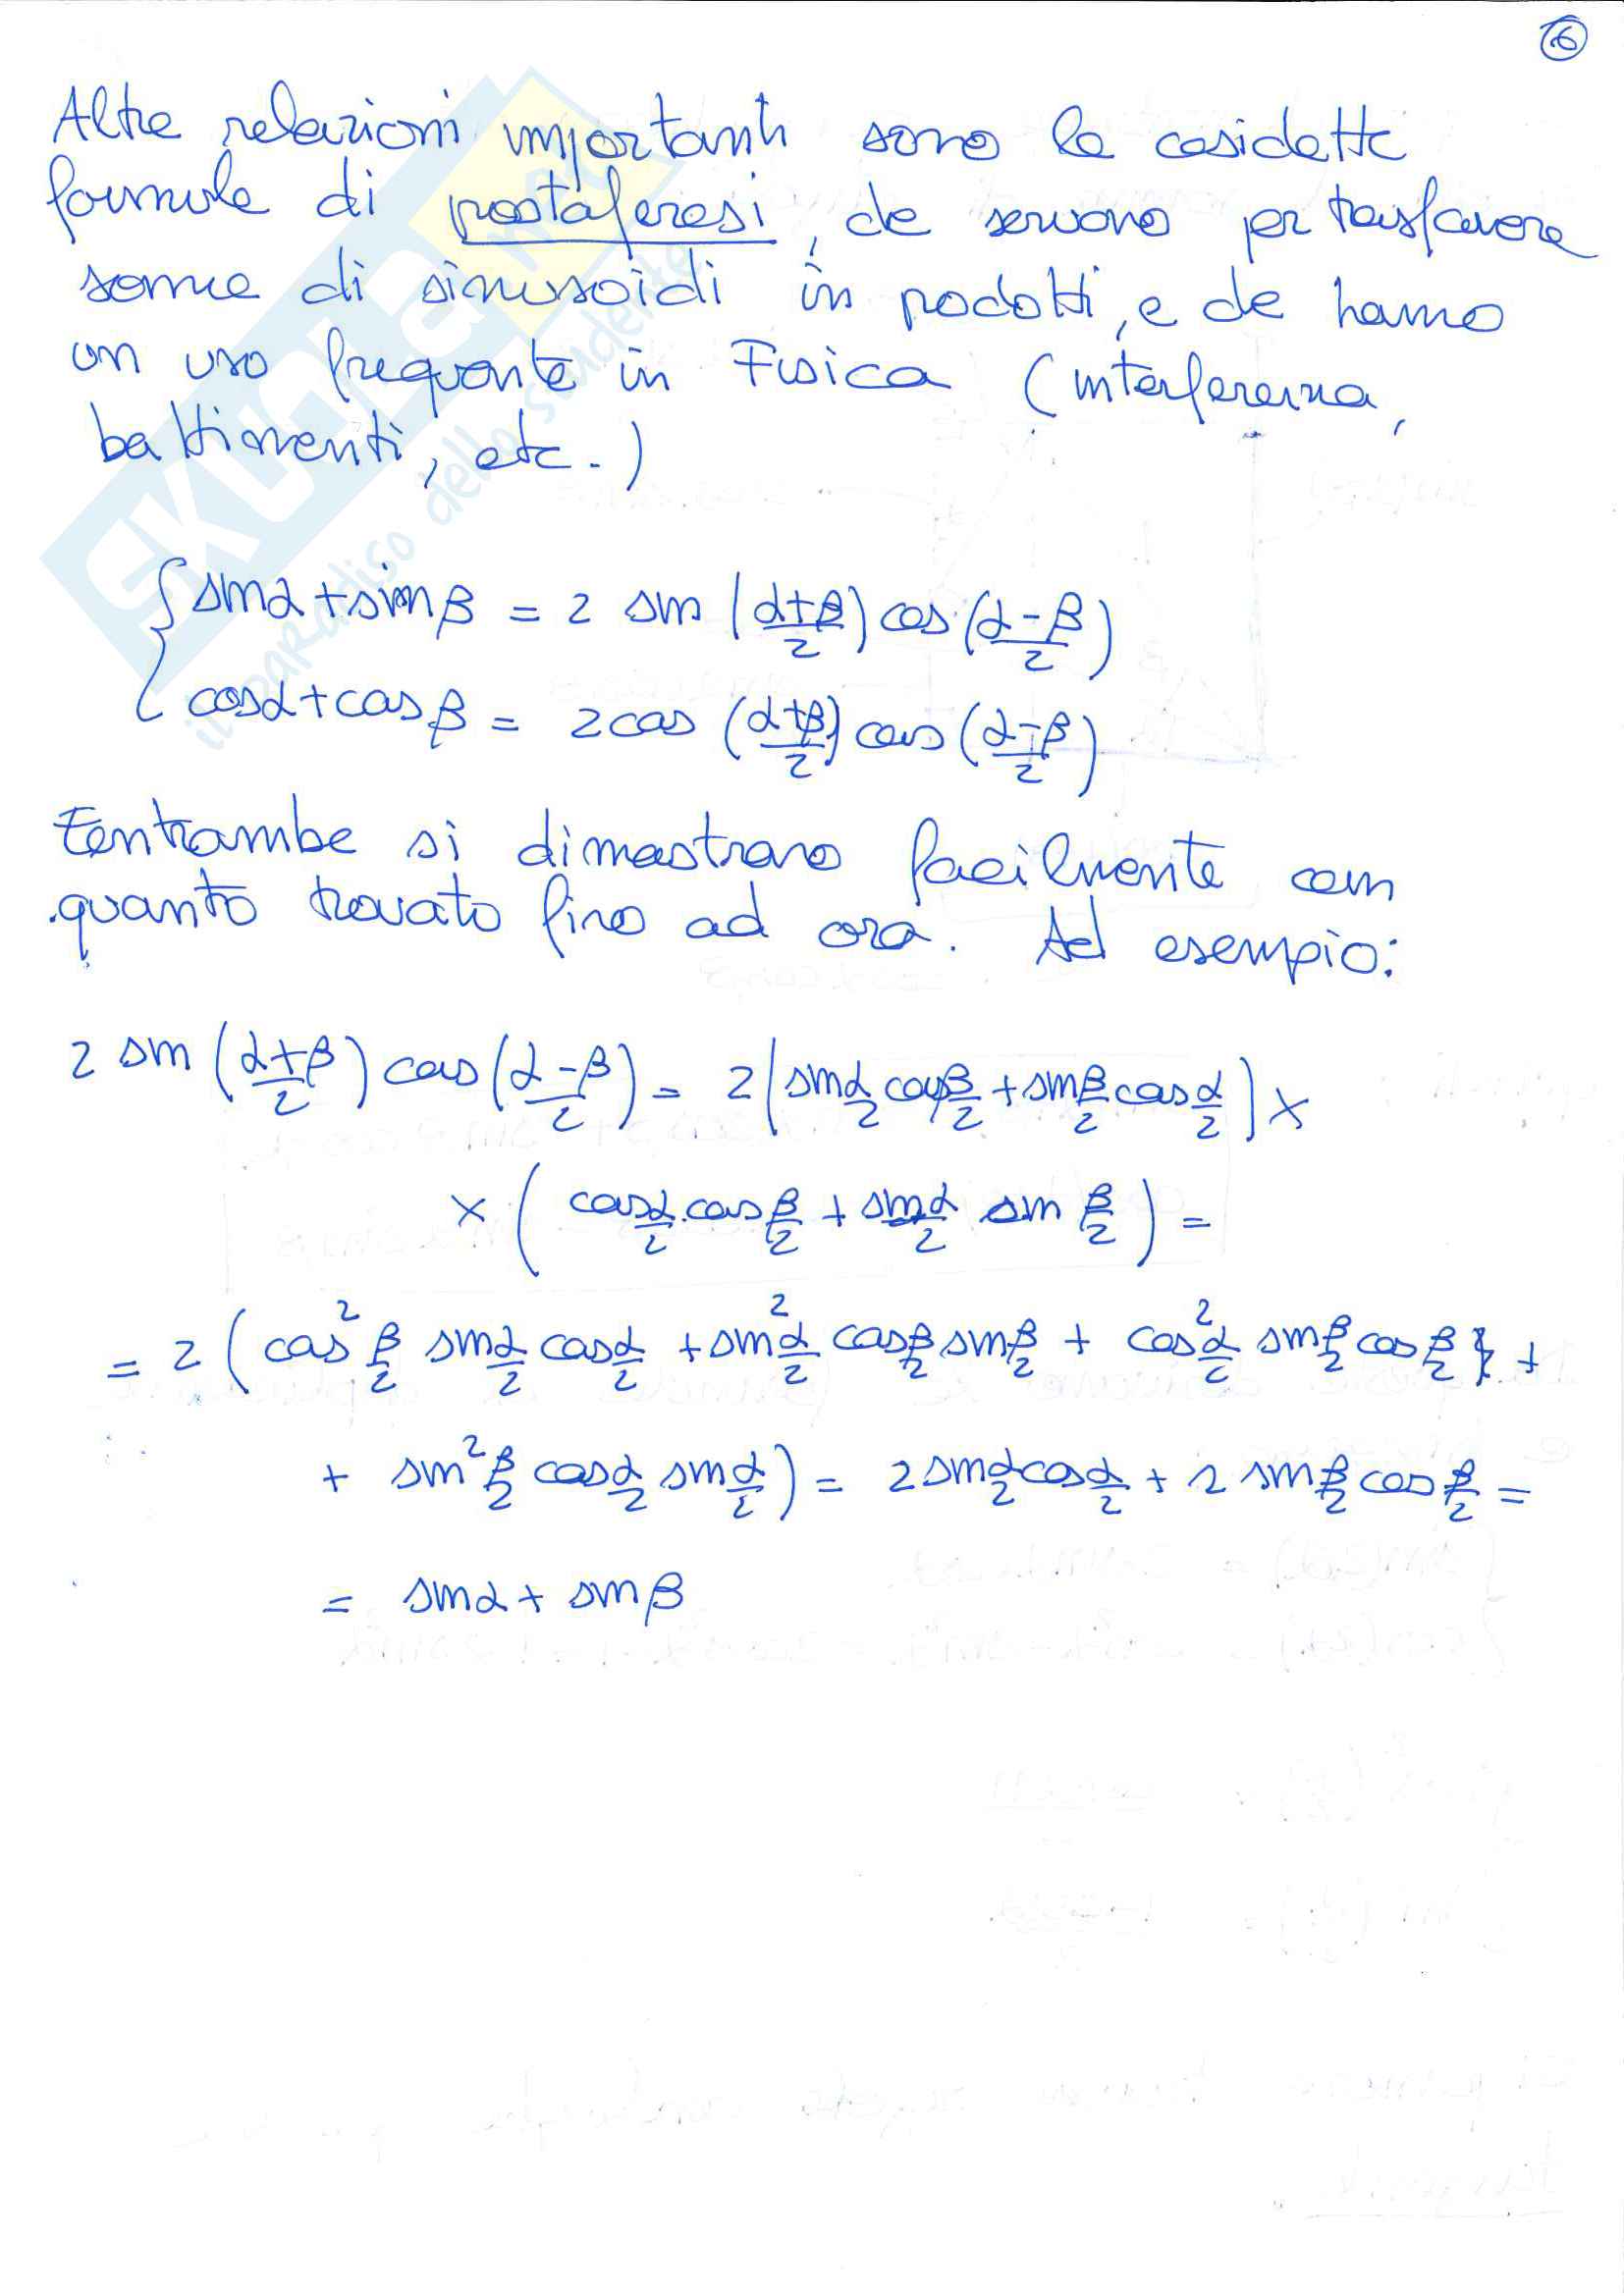 16
Altre relazioni importanti sono le cosidette
formule di prostaferesi, che servono per trasformare
somme di sinusoidi in prodotti, e che hanno
un uso frequente in Fisica (interferenza,
battimenti, etc.)
{ sinα + sinβ = 2 sin (α+β/2) cos (α-β/2)
{ cosα + cosβ = 2 cos (α+β/2) cos (α-β/2)
Entrambe si dimostrano facilmente con
quanto trovato fino ad ora. Ad esempio:
2 sin (α+β/2) cos (α-β/2) = 2 (sin α/2 cos β/2 + sin β/2 cos α/2) ×
× ( cos α/2 · cos β/2 + sin α/2 sin β/2 ) =
= 2 ( cos² β/2 sin α/2 cos α/2 + sin² α/2 cos β/2 sin β/2 + cos² α/2 sin β/2 cos β/2 +
+ sin² β/2 cos α/2 sin α/2 ) = 2 sin α/2 cos α/2 + 2 sin β/2 cos β/2 =
= sinα + sinβ
SKUOLA.net
il paradiso dello studente